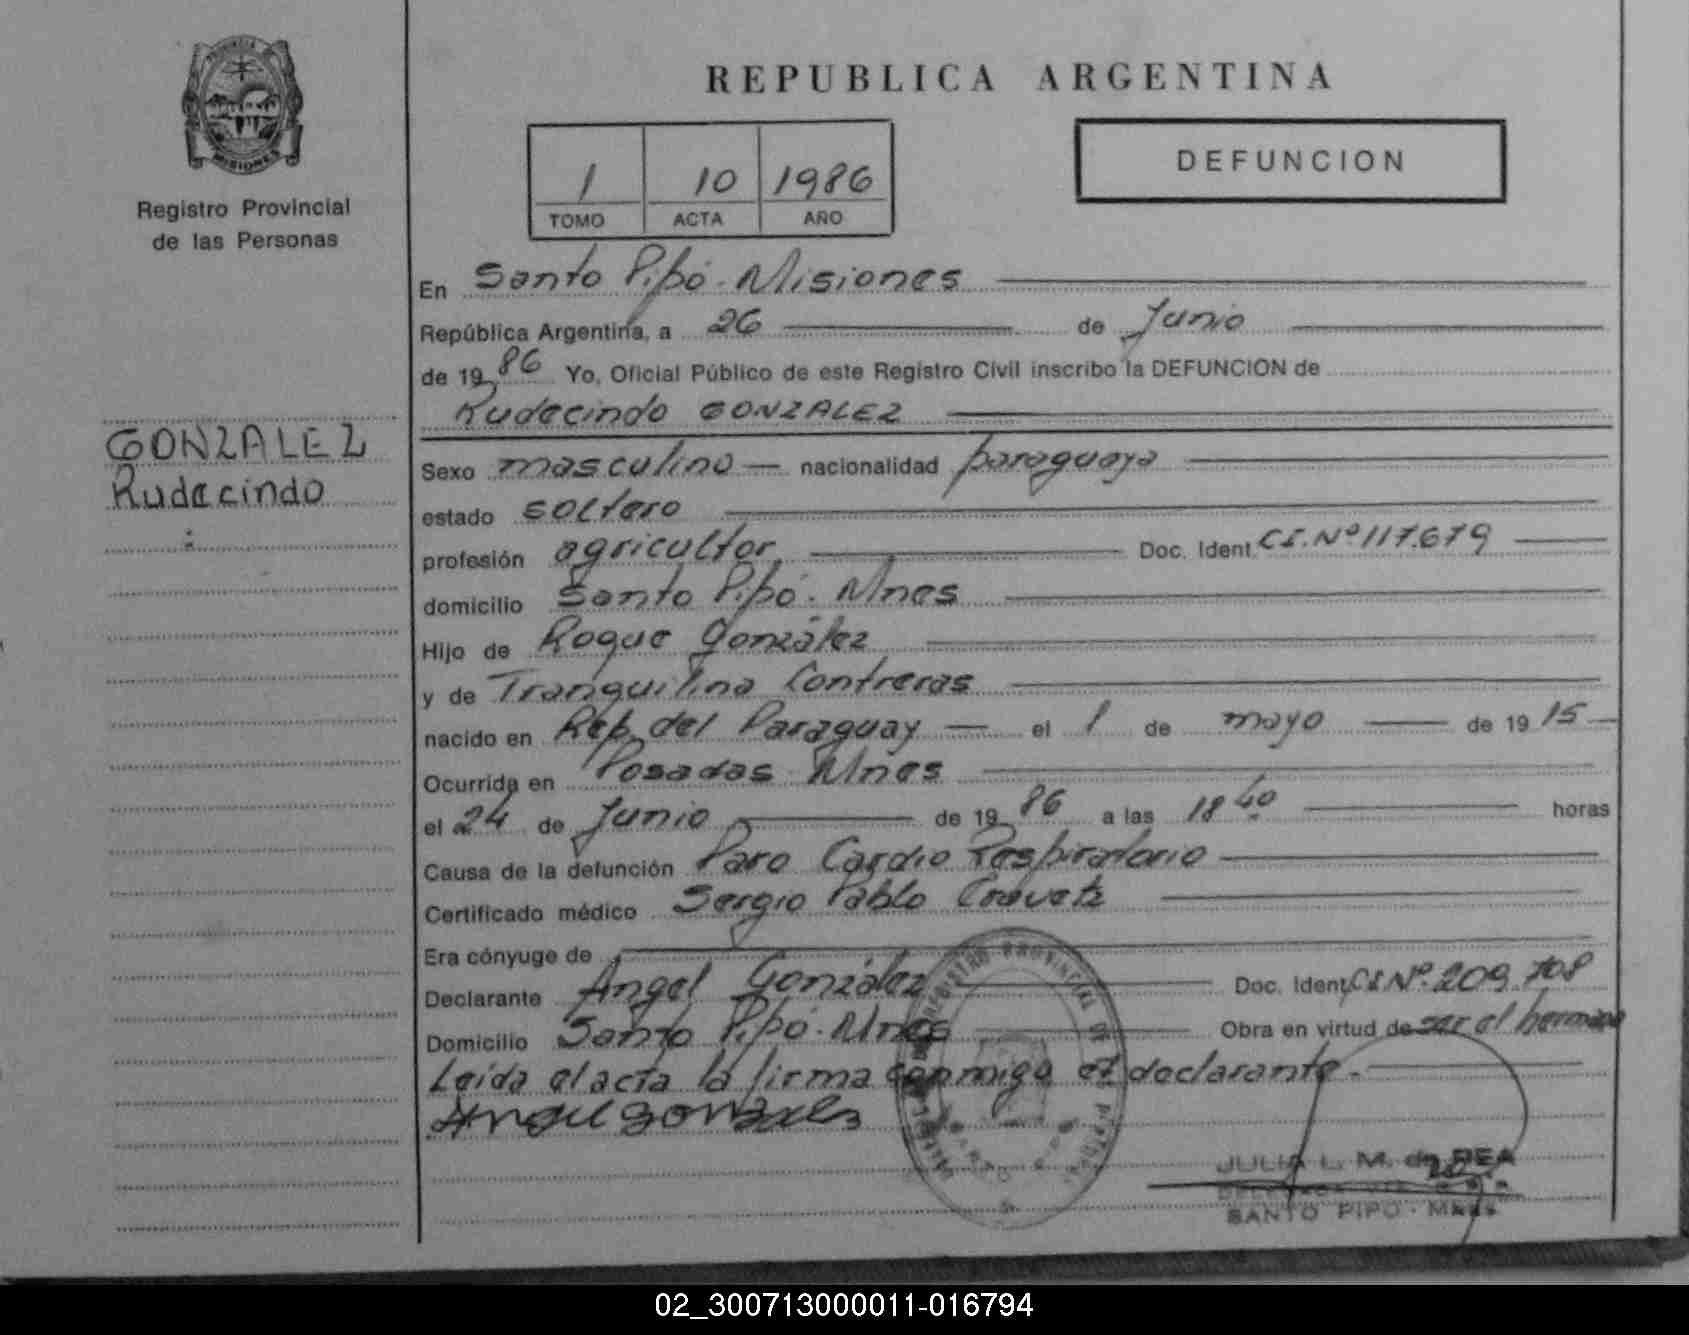 PROVINCIA DE
MISIONES
Registro Provincial
de las Personas
GONZALEZ
Rudecindo
REPUBLICA ARGENTINA
1 10 1986
TOMO ACTA AÑO
DEFUNCION
En Santo Pipó - Misiones
República Argentina, a 26 de Junio
de 1986 Yo, Oficial Público de este Registro Civil inscribo la DEFUNCION de
Rudecindo GONZALEZ
Sexo masculino nacionalidad paraguaya
estado soltero
profesión agricultor Doc. Ident. C.I. Nº 117.679
domicilio Santo Pipó. Mnes
Hijo de Roque González
y de Tranquilina Contreras
nacido en Rep. del Paraguay el 1 de mayo de 1915
Ocurrida en Posadas Mnes
el 24 de Junio de 1986 a las 18 40 horas
Causa de la defunción Paro Cardio Respiratorio
Certificado médico Sergio Pablo
Era cónyuge de
Declarante Angel González Doc. Ident. C.I. Nº. 209.708
Domicilio Santo Pipó. Mnes Obra en virtud de ser el hermano
Leída el acta la firma conmigo el declarante.
Angel gonzales
REGISTRO PROVINCIAL DE
JULIA L. M. de REA
SANTO PIPO - Mnes.
02_300713000011-016794